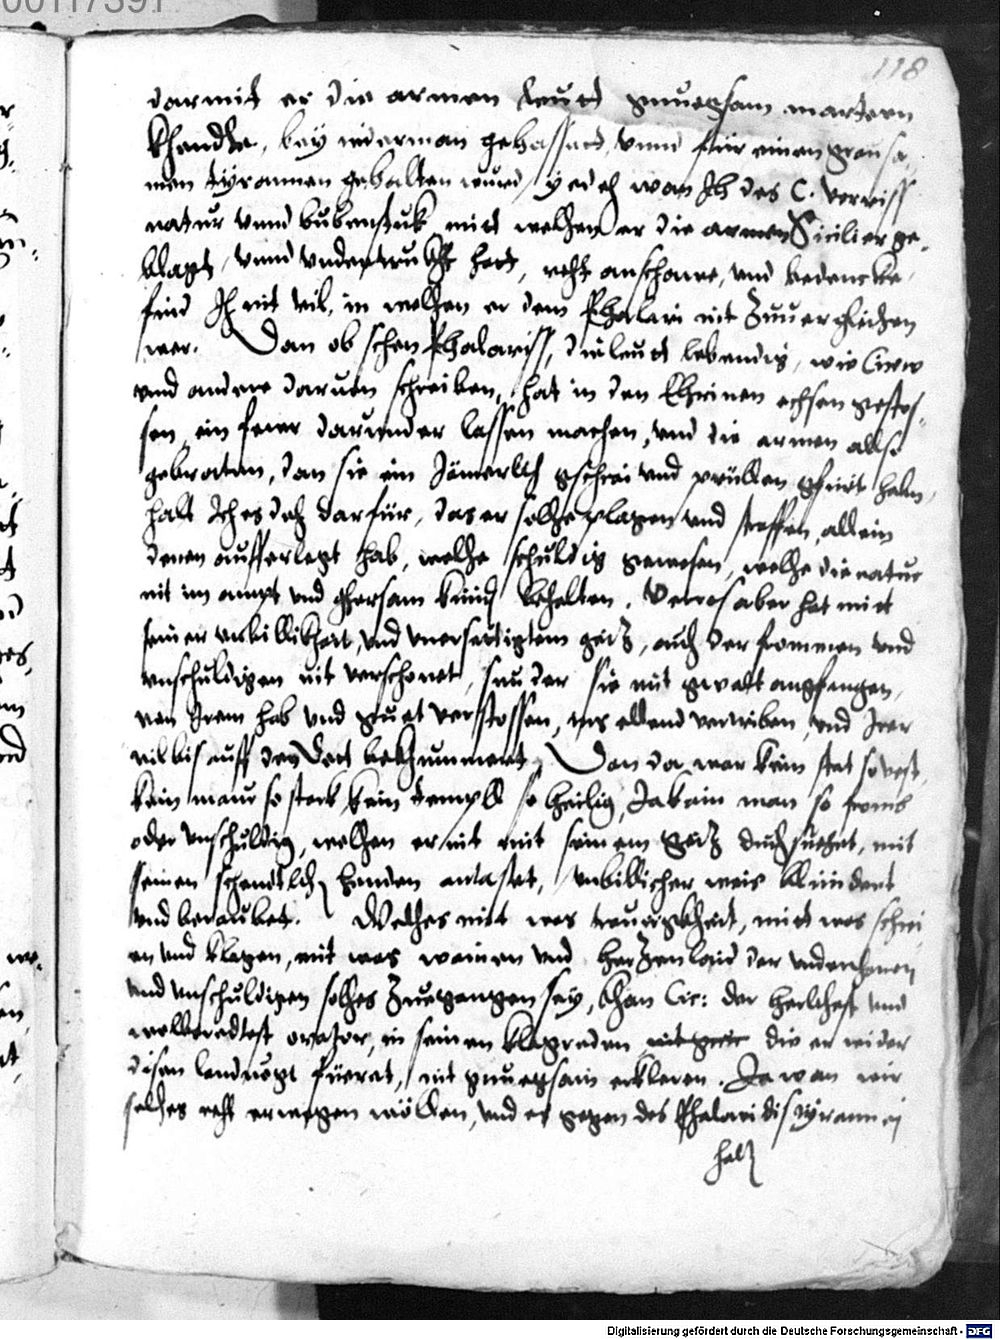 118
darmit er die armen leutt gnuegsam martern
khendte, bey iederman gehasset, vnnd für einen grausa-
men tyrannen gehalten wurd, yedoch wan Ich des C. Verriss
natur vnnd bubenstuk, mitt welchen er die armen Sicilier ge-
klagt, vnnd vndertrukht hatt, recht anschawe, vnd bedencke,
find Ich nit vil, in welchen er dem Phalari nit Zuuergleichen
wer. Dan ob schon Phalariss, die leutt lebendig, wie Cicero
vnd andere daruon schreiben, hat in den Ehrinen ochsen gestos-
sen, ein feuer darunder lassen machen, vnd die armen allso
gebraten, dan sie ein Jämerlich gschrei vnd prüllen gfürt haben,
halt Ich es doch darfür, das er solche plagen vnd straffen, allein
denen aufferlegt hab, welche schuldig gewesen, welche die natur
nit im ampt vnd ghorsam künd bhalten. Verres aber hat mitt
seiner vnbillikhait, vnd vnersettigtem geitz, auch der frommen vnd
vnschuldigen nit verschonet, sunder sie mit gwalt angfangen,
von Irem hab vnd guet verstossen, ins ellend vertriben, vnd Irer
vil bis auff den Dott bekhummert. Dan da war kein stat so vest,
kein maur so stark, kein tempell so heilig, Ja kain man so fromb
oder vnschuldig, welchen er nit mit seinem geitz durchsuechet, mit
seinen schendtlich henden antastet, vnbillicher weis blündert
vnd beraubet. Welches mitt was traurigkheit, mitt was schrei-
en vnd klagen, mit was wainen vnd hertzenlaid der
vnd vnschuldigen solches Zuegangen sey, khan Cic: der herlichest vnd
wollberedtest orator, in seinen klagreden die er wider
disen landuogt füeret, nit gnuegsam erkleren. Ja wan wir
solches recht erwegen wöllen, vnd es gegen des Phalaridis tyrannei
halt
Digitalisierung gefördert durch die Deutsche Forschungsgemeinschaft - DFG